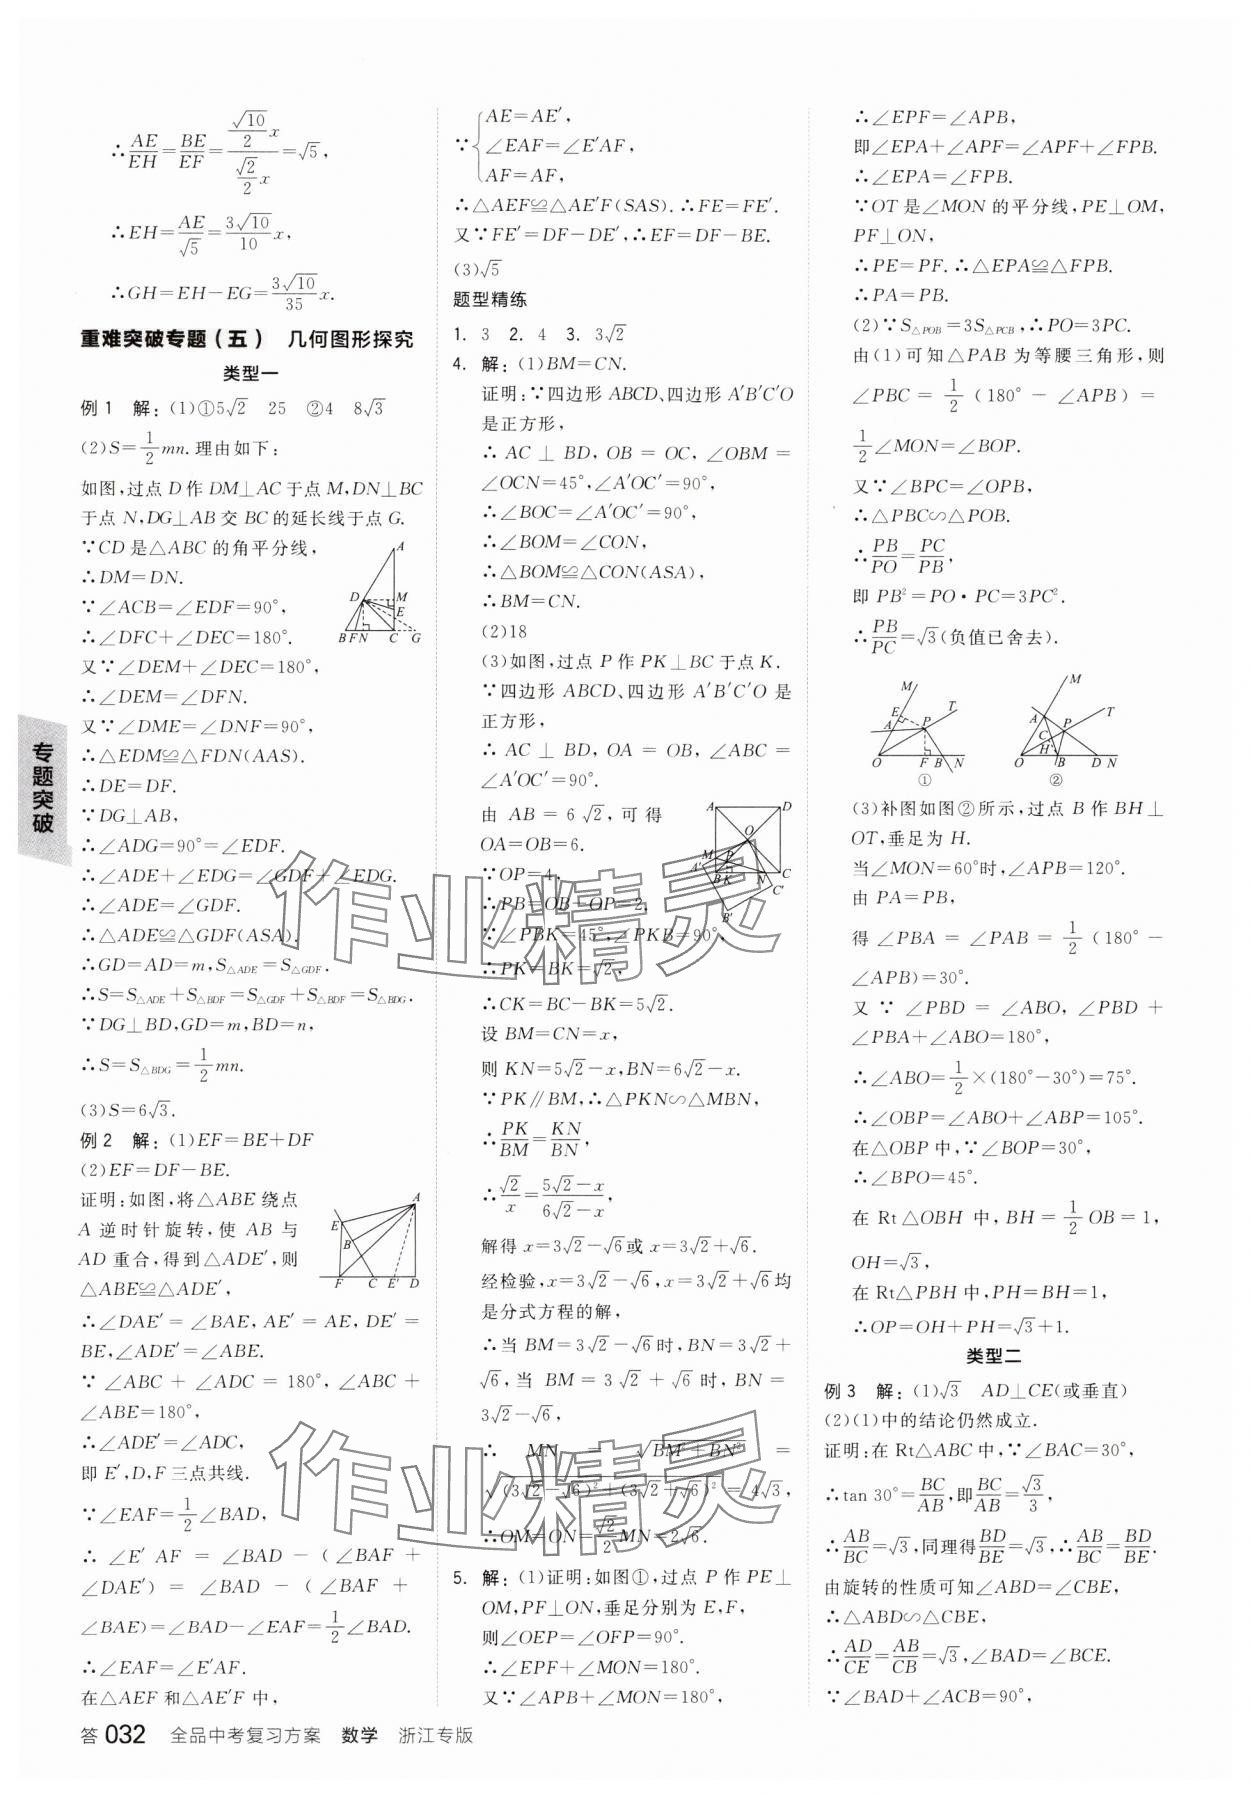 ∴AE/EH=BE/EF=(√10/2 x)/(√2/2 x)=√5,
∴EH=AE/√5=3√10/10 x,
∴GH=EH-EG=3√10/35 x.
重难突破专题(五) 几何图形探究
类型一
例1 解:(1)①5√2 25 ②4 8√3
(2)S=1/2 mn.理由如下:
如图,过点D作DM⊥AC于点M,DN⊥BC
于点N,DG⊥AB交BC的延长线于点G.
∵CD是△ABC的角平分线,
∴DM=DN.
∵∠ACB=∠EDF=90°,
∴∠DFC+∠DEC=180°.
又∵∠DEM+∠DEC=180°,
∴∠DEM=∠DFN.
又∵∠DME=∠DNF=90°,
∴△EDM≌△FDN(AAS).
∴DE=DF.
∵DG⊥AB,
∴∠ADG=90°=∠EDF.
∴∠ADE+∠EDG=∠GDF+∠EDG.
∴∠ADE=∠GDF.
∴△ADE≌△GDF(ASA).
∴GD=AD=m,S△ADE=S△GDF.
∴S=S△ADE+S△BDF=S△GDF+S△BDF=S△BDG.
∵DG⊥BD,GD=m,BD=n,
∴S=S△BDG=1/2 mn.
(3)S=6√3.
例2 解:(1)EF=BE+DF
(2)EF=DF-BE.
证明:如图,将△ABE绕点
A逆时针旋转,使AB与
AD重合,得到△ADE′,则
△ABE≌△ADE′,
∴∠DAE′=∠BAE,AE′=AE,DE′=
BE,∠ADE′=∠ABE.
∵∠ABC+∠ADC=180°,∠ABC+
∠ABE=180°,
∴∠ADE′=∠ADC,
即E′,D,F三点共线.
∵∠EAF=1/2∠BAD,
∴∠E′AF=∠BAD-(∠BAF+
∠DAE′)=∠BAD-(∠BAF+
∠BAE)=∠BAD-∠EAF=1/2∠BAD.
∴∠EAF=∠E′AF.
在△AEF和△AE′F中,
∵{AE=AE′,
∠EAF=∠E′AF,
AF=AF,
∴△AEF≌△AE′F(SAS).∴FE=FE′.
又∵FE′=DF-DE′,∴EF=DF-BE.
(3)√5
题型精练
1. 3 2. 4 3. 3√2
4. 解:(1)BM=CN.
证明:∵四边形ABCD、四边形A′B′C′O
是正方形,
∴AC⊥BD,OB=OC,∠OBM=
∠OCN=45°,∠A′OC′=90°,
∴∠BOC=∠A′OC′=90°,
∴∠BOM=∠CON,
∴△BOM≌△CON(ASA),
∴BM=CN.
(2)18
(3)如图,过点P作PK⊥BC于点K.
∵四边形ABCD、四边形A′B′C′O是
正方形,
∴AC⊥BD,OA=OB,∠ABC=
∠A′OC′=90°.
由AB=6√2,可得
OA=OB=6.
∵OP=4,
∴PB=OB-OP=2.
∵∠PBK=45°,∠PKB=90°,
∴PK=BK=√2,
∴CK=BC-BK=5√2.
设BM=CN=x,
则KN=5√2-x,BN=6√2-x.
∵PK∥BM,∴△PKN∽△MBN,
∴PK/BM=KN/BN,
∴√2/x=(5√2-x)/(6√2-x),
解得x=3√2-√6或x=3√2+√6.
经检验,x=3√2-√6,x=3√2+√6均
是分式方程的解,
∴当BM=3√2-√6时,BN=3√2+
√6,当BM=3√2+√6时,BN=
3√2-√6,
∴MN=√(BM²+BN²)=
√((3√2-√6)²+(3√2+√6)²)=4√3,
∴OM=ON=√2/2 MN=2√6.
5. 解:(1)证明:如图①,过点P作PE⊥
OM,PF⊥ON,垂足分别为E,F,
则∠OEP=∠OFP=90°.
∴∠EPF+∠MON=180°.
又∵∠APB+∠MON=180°,
∴∠EPF=∠APB,
即∠EPA+∠APF=∠APF+∠FPB.
∴∠EPA=∠FPB.
∵OT是∠MON的平分线,PE⊥OM,
PF⊥ON,
∴PE=PF.∴△EPA≌△FPB.
∴PA=PB.
(2)∵S△POB=3S△PCB,∴PO=3PC.
由(1)可知△PAB为等腰三角形,则
∠PBC=1/2(180°-∠APB)=
1/2∠MON=∠BOP.
又∵∠BPC=∠OPB,
∴△PBC∽△POB.
∴PB/PO=PC/PB,
即PB²=PO·PC=3PC².
∴PB/PC=√3(负值已舍去).
① ②
(3)补图如图②所示,过点B作BH⊥
OT,垂足为H.
当∠MON=60°时,∠APB=120°.
由PA=PB,
得∠PBA=∠PAB=1/2(180°-
∠APB)=30°.
又∵∠PBD=∠ABO,∠PBD+
∠PBA+∠ABO=180°,
∴∠ABO=1/2×(180°-30°)=75°.
∴∠OBP=∠ABO+∠ABP=105°.
在△OBP中,∵∠BOP=30°,
∴∠BPO=45°.
在Rt△OBH中,BH=1/2 OB=1,
OH=√3,
在Rt△PBH中,PH=BH=1,
∴OP=OH+PH=√3+1.
类型二
例3 解:(1)√3 AD⊥CE(或垂直)
(2)(1)中的结论仍然成立.
证明:在Rt△ABC中,∵∠BAC=30°,
∴tan 30°=BC/AB,即BC/AB=√3/3,
∴AB/BC=√3,同理得BD/BE=√3,∴AB/BC=BD/BE.
由旋转的性质可知∠ABD=∠CBE,
∴△ABD∽△CBE,
∴AD/CE=AB/CB=√3,∠BAD=∠BCE.
∵∠BAD+∠ACB=90°,
专题突破
作业精灵
作业精灵
答 032 全品中考复习方案 数学 浙江专版